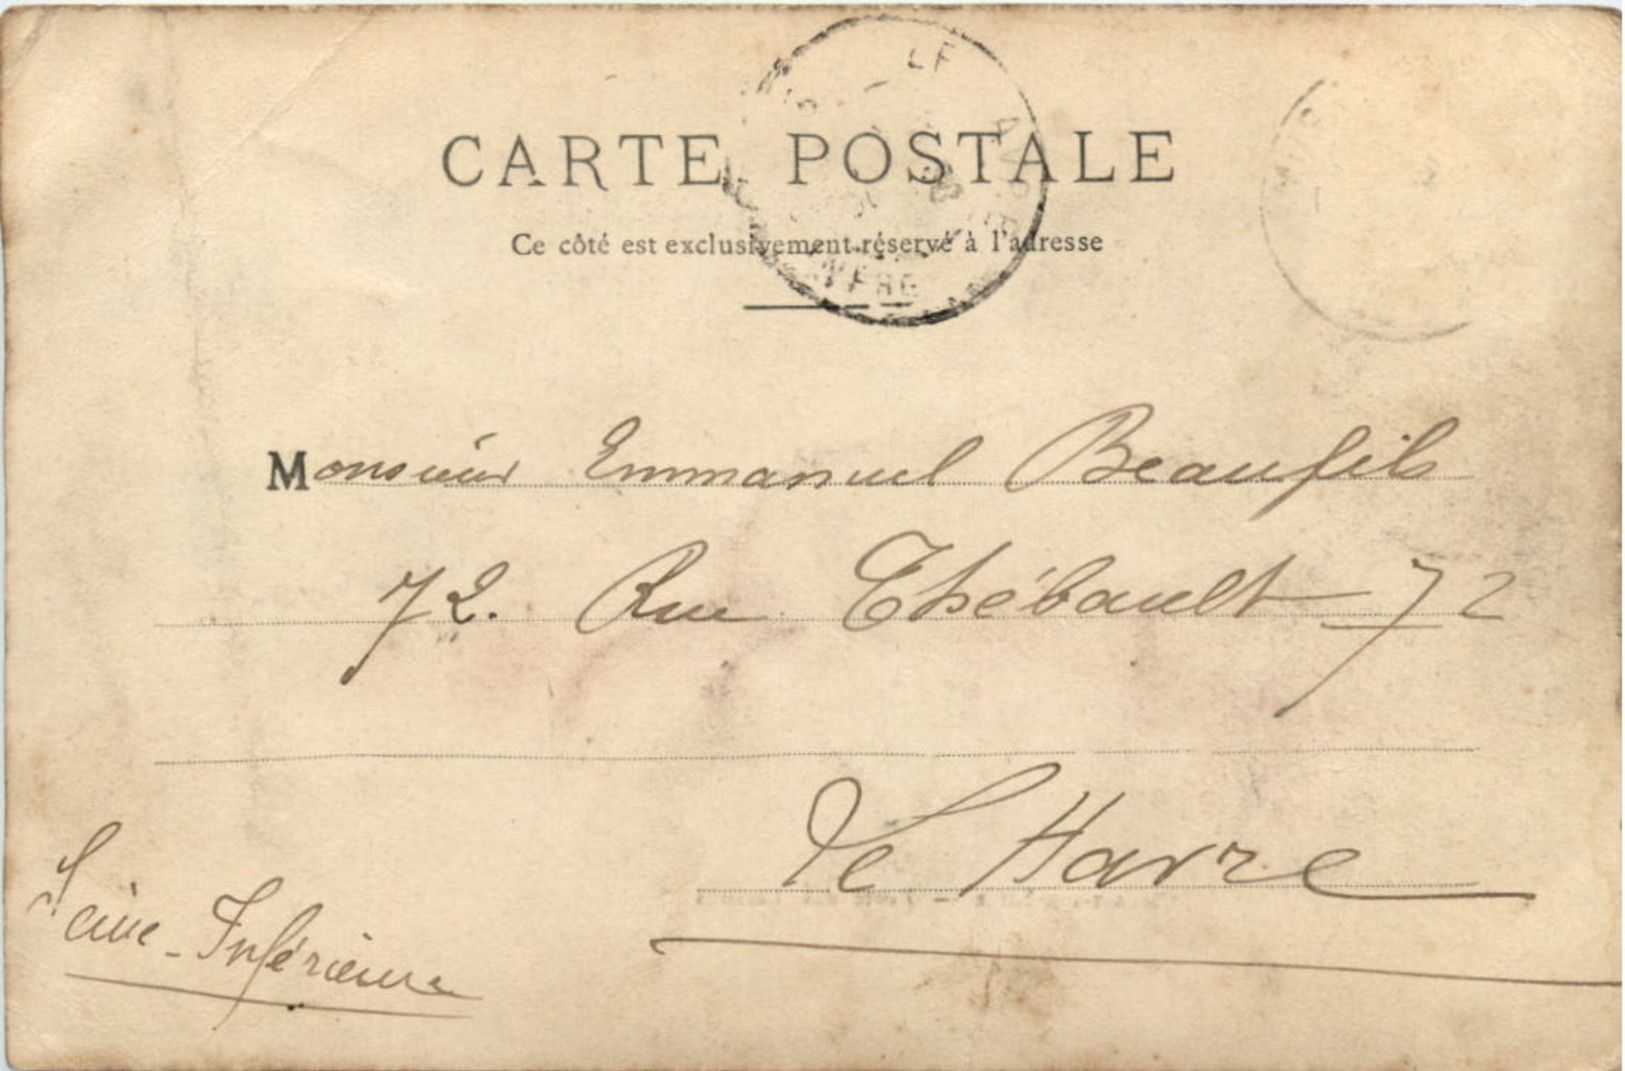 CARTE POSTALE
Ce côté est exclusivement réservé à l'adresse
Monsieur Emmanuel Beaufils
72. Rue Thébault 72
Le Havre
Seine-Inférieure